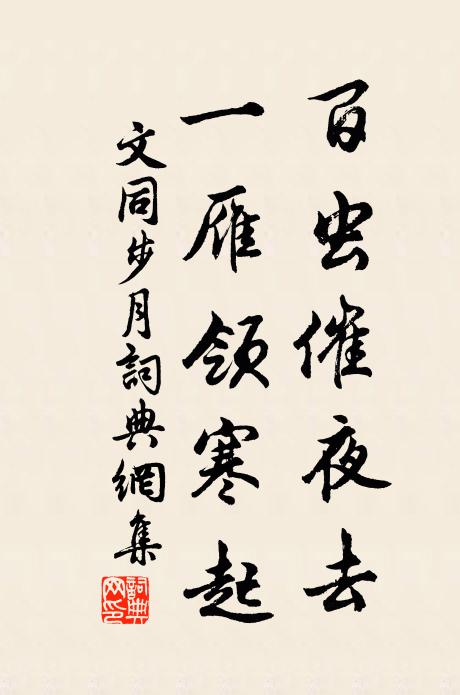 百虫催夜去
一雁領寒起
文同步月詞典網集
詞典網印